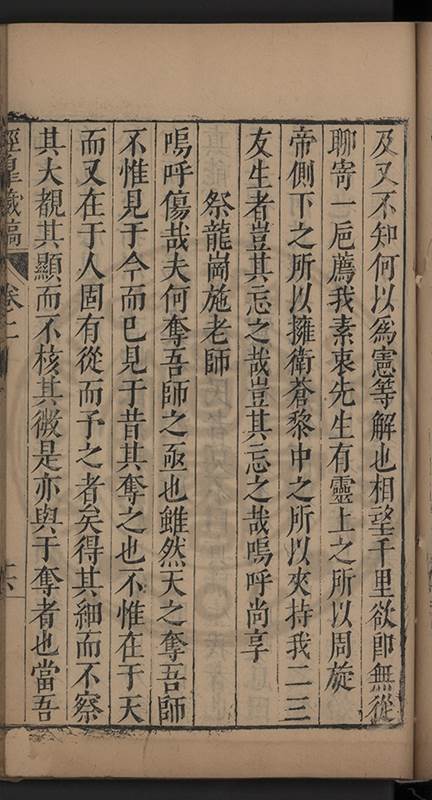 及又不知何以為憲等解也相望千里欲卽無從
聊寄一巵薦我素衷先生有靈上之所以周旋
帝側下之所以擁衛蒼黎中之所以夾持我二三
友生者豈其忘之哉豈其忘之哉嗚呼尚享
祭龍崗施老師
嗚呼傷哉夫何奪吾師之亟也雖然天之奪吾師
不惟見于今而已見于昔其奪之也不惟在于天
而又在于人固有從而予之者矣得其細而不察
其大覩其顯而不核其微是亦與于奪者也當吾
涇臯藏稿 卷二 六